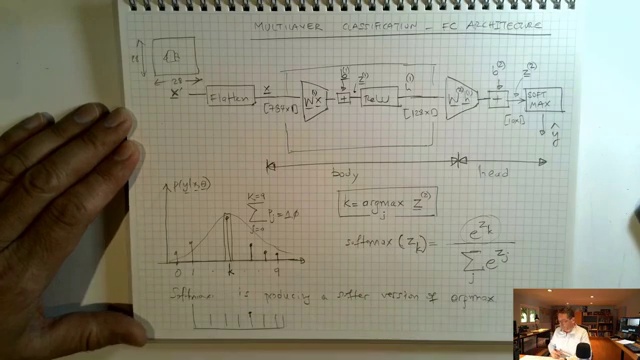 MULTILAYER CLASSIFICATION - FC ARCHITECTURE
28
28
X
Flatten
x
[784x1]
W⁽¹⁾x
b⁽¹⁾
+
z⁽¹⁾
ReLU
h⁽¹⁾
[128x1]
W⁽²⁾h⁽¹⁾
b⁽²⁾
+
z⁽²⁾
[10x1]
SOFT MAX
ŷ
body
head
p(y|x,θ)
K=9
∑ p_j = 1.0
j=0
0 1 k 9
k = argmax z⁽²⁾
softmax (z_k) = e^{z_k} / ∑_j e^{z_j}
Softmax is producing a softer version of argmax